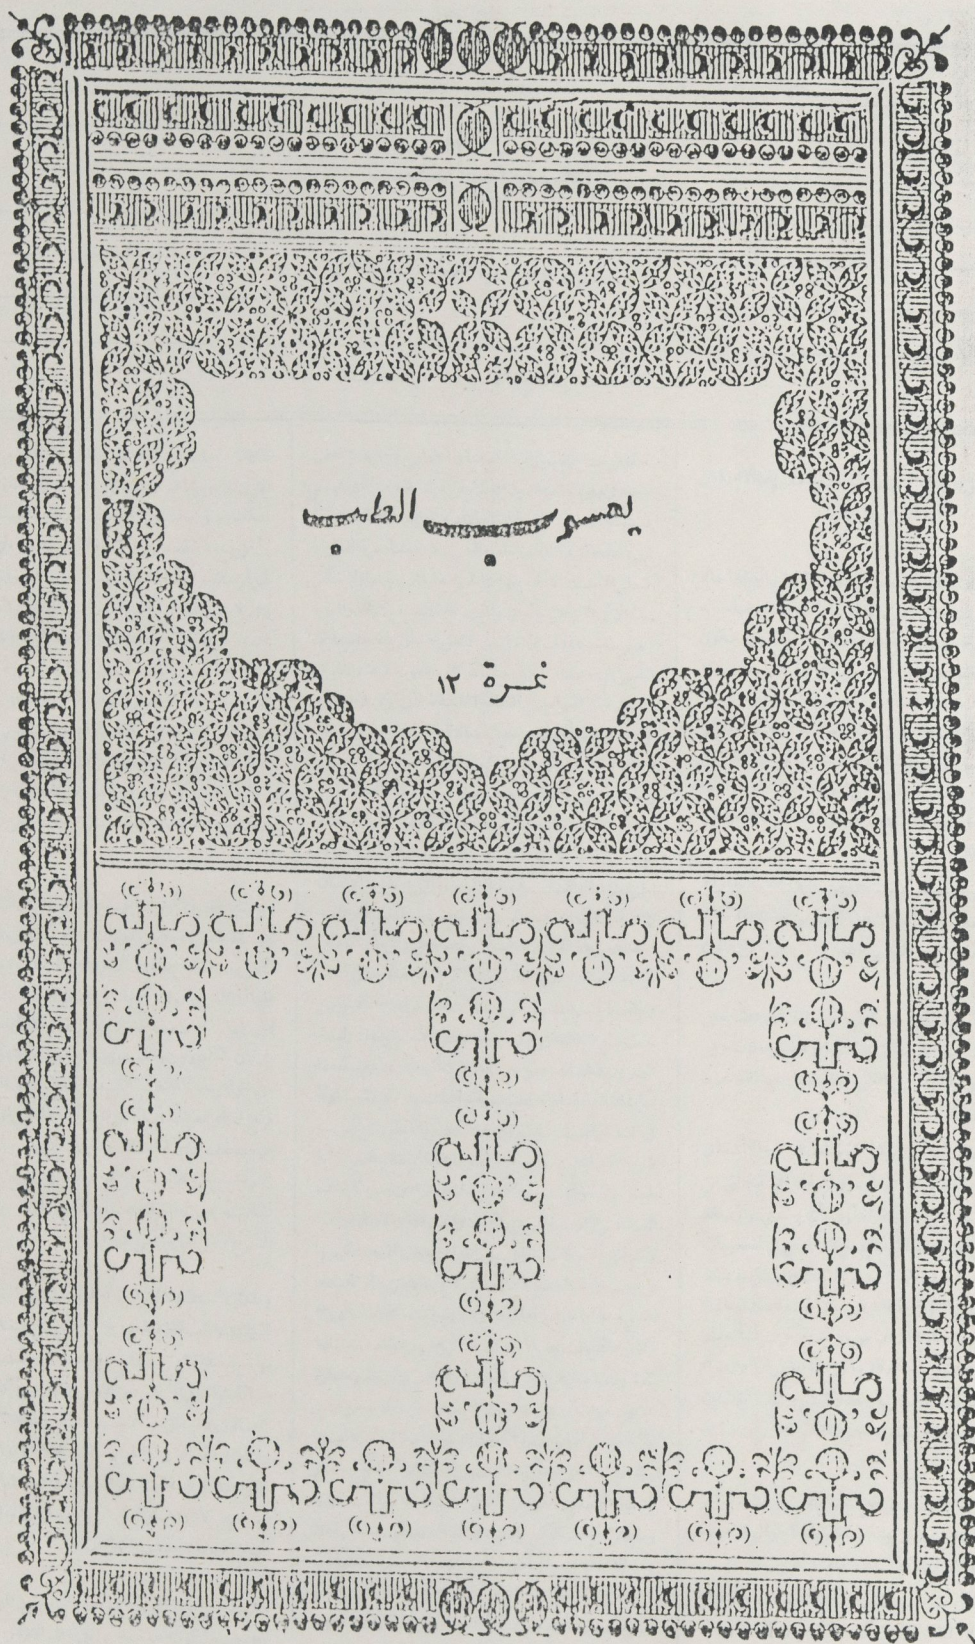 يعسوب الطب
نمرة ١٢